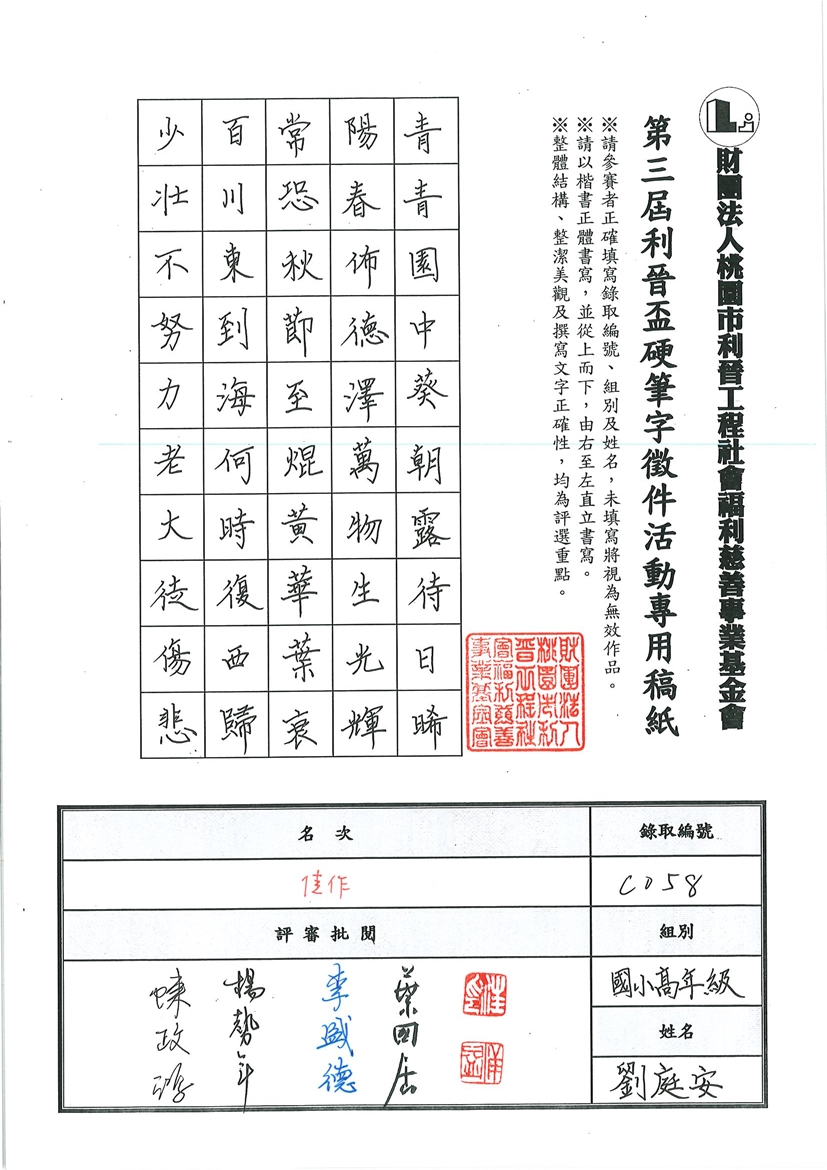 財團法人桃園市利晉工程社會福利慈善事業基金會
第三屆利晉盃硬筆字徵件活動專用稿紙
※請參賽者正確填寫錄取編號、組別及姓名，未填寫將視為無效作品。
※請以楷書正體書寫，並從上而下，由右至左直立書寫。
※整體結構、整潔美觀及撰寫文字正確性，均為評選重點。
財團法人
桃園市利
晉工程社
會福利慈善
事業基金會
青青園中葵朝露待日晞
陽春佈德澤萬物生光輝
常恐秋節至焜黃華葉衰
百川東到海何時復西歸
少壯不努力老大徒傷悲
錄取編號
C058
組別
國小高年級
姓名
劉庭安
名次
佳作
評審批閱
葉國居
李盛德
楊勢年
陳政